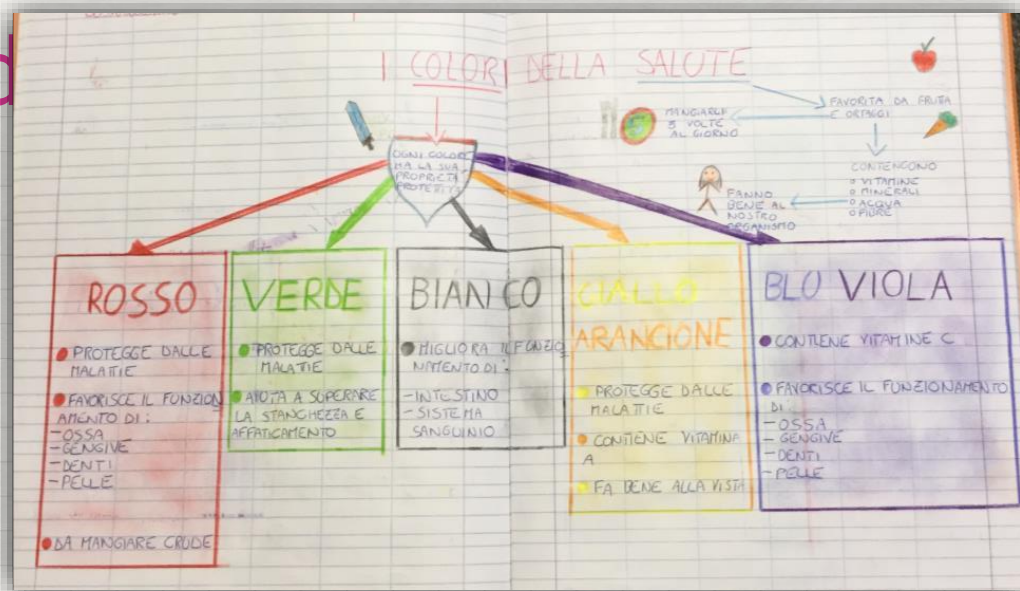 I COLORI DELLA SALUTE
FAVORITA DA FRUTA
E ORTAGGI
MANGIARLE
5 VOLTE
AL GIORNO
CONTENGONO
VITAMINE
MINERALI
ACQUA
FIBRE
FANNO
BENE AL
NOSTRO
ORGANISMO
OGNI COLORE
HA LA SUA
PROPRIETÀ
ROSSO
PROTEGGE DALLE
MALATIE
FAVORISCE IL FUNZION
AMENTO DI:
-OSSA
-GENGIVE
-DENTI
-PELLE
DA MANGIARE CRUDE
VERDE
PROTEGGE DALLE
MALATIE
AIUTA A SUPERARE
LA STANCHEZZA E
AFFATICAMENTO
BIANCO
MIGLIORA IL FUNZIO
NAMENTO DI:
-INTESTINO
-SISTEMA
SANGUINIO
GIALLO
ARANCIONE
PROTEGGE DALLE
MALATTIE
CONTIENE VITAMINA
A
FA BENE ALLA VISTA
BLU VIOLA
CONTIENE VITAMINE C
FAVORISCE IL FUNZIONAMENTO
DI:
-OSSA
-GENGIVE
-DENTI
-PELLE